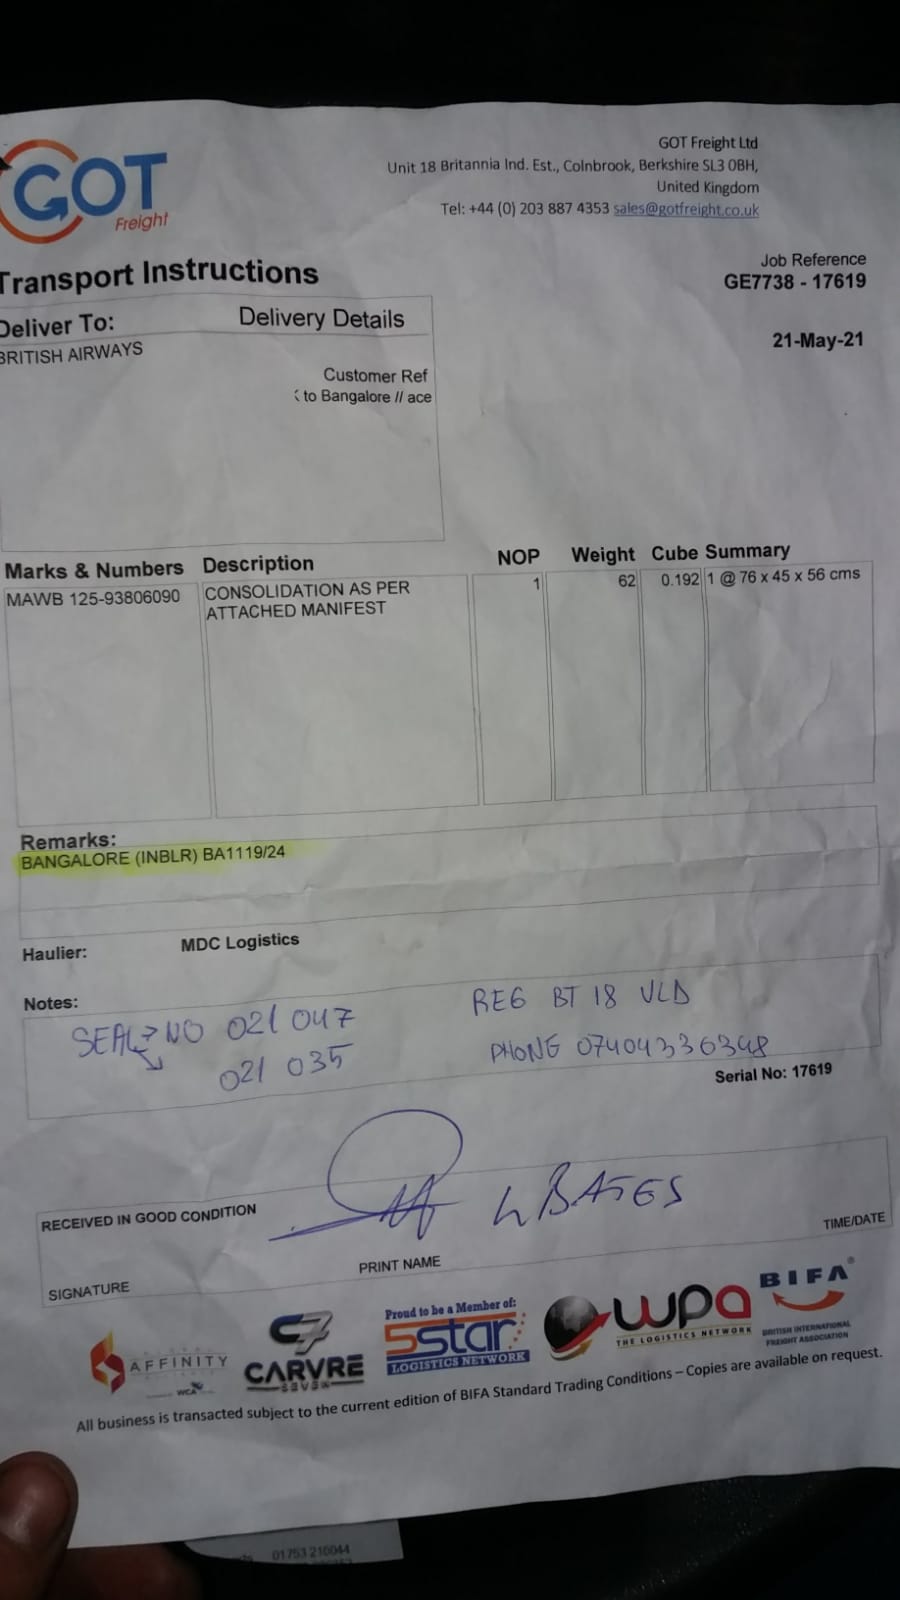 GOT
Freight
GOT Freight Ltd
Unit 18 Britannia Ind. Est., Colnbrook, Berkshire SL3 0BH,
United Kingdom
Tel: +44 (0) 203 887 4353 sales@gotfreight.co.uk
Transport Instructions
Job Reference
GE7738 - 17619
Deliver To: Delivery Details
BRITISH AIRWAYS
21-May-21
Customer Ref
to Bangalore // ace
Marks & Numbers Description NOP Weight Cube Summary
MAWB 125-93806090 CONSOLIDATION AS PER 1 62 0.192 1 @ 76 x 45 x 56 cms
ATTACHED MANIFEST
Remarks:
BANGALORE (INBLR) BA1119/24
Haulier: MDC Logistics
Notes:
SEAL NO 021 047 REG BT 18 VLD
021 035 PHONE 07404336348
Serial No: 17619
RECEIVED IN GOOD CONDITION
L BATES
SIGNATURE PRINT NAME TIME/DATE
AFFINITY
WCA
C7
CARVRE
SEVEN
Proud to be a Member of:
5star
LOGISTICS NETWORK
wpa
THE LOGISTICS NETWORK
BIFA
BRITISH INTERNATIONAL
FREIGHT ASSOCIATION
All business is transacted subject to the current edition of BIFA Standard Trading Conditions – Copies are available on request.
01753 210044